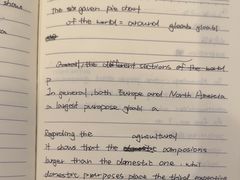 shows
The given pie chart
of the world = around globe globl
Overall, the different sections of the world
P
In general, both Europe and North America
a largest purpose globl a
Regarding the agricultural
It shows that the comparisons
larger than the domestic one whil
domestic purposes place the third